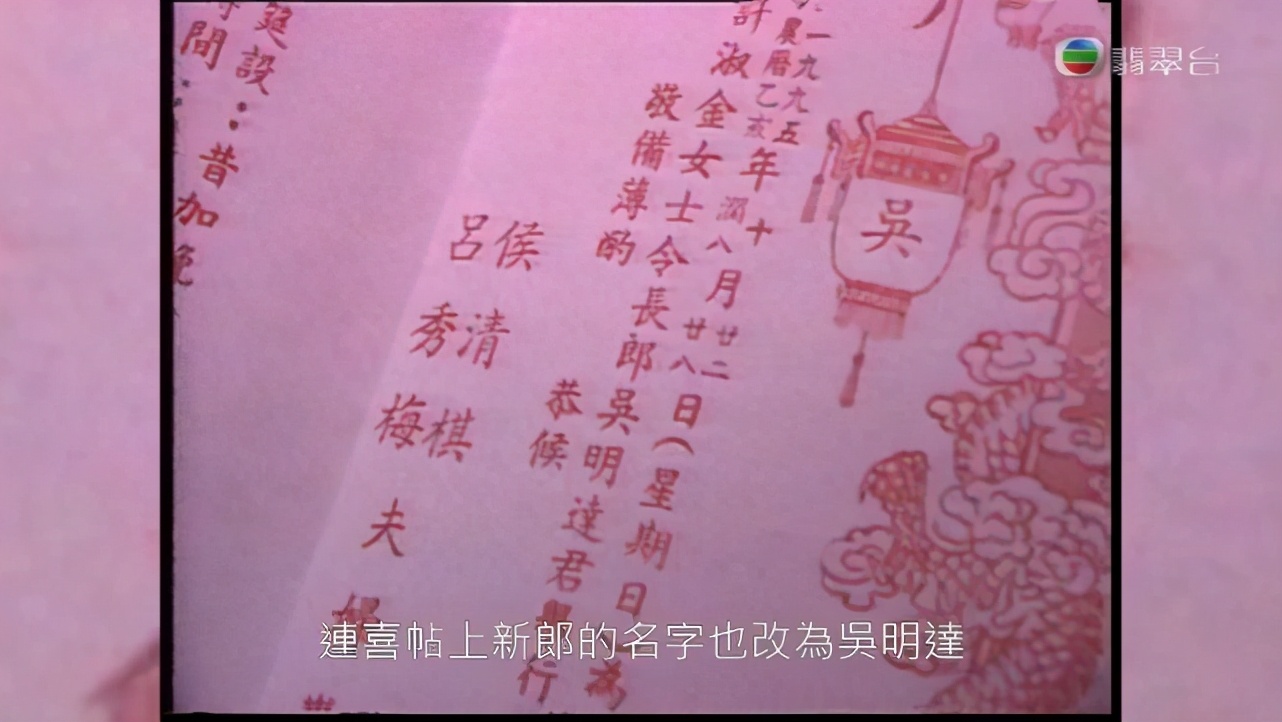 翡翠台
吳
一九九五
農曆乙亥
年
十
潤八
月
廿二
廿八
日(星期日
為
許淑金女士令長郎吳明達君
行
敬備薄酌
恭候
侯清棋
呂秀梅
夫
筵設：昔加
時間：
連喜帖上新郎的名字也改為吳明達